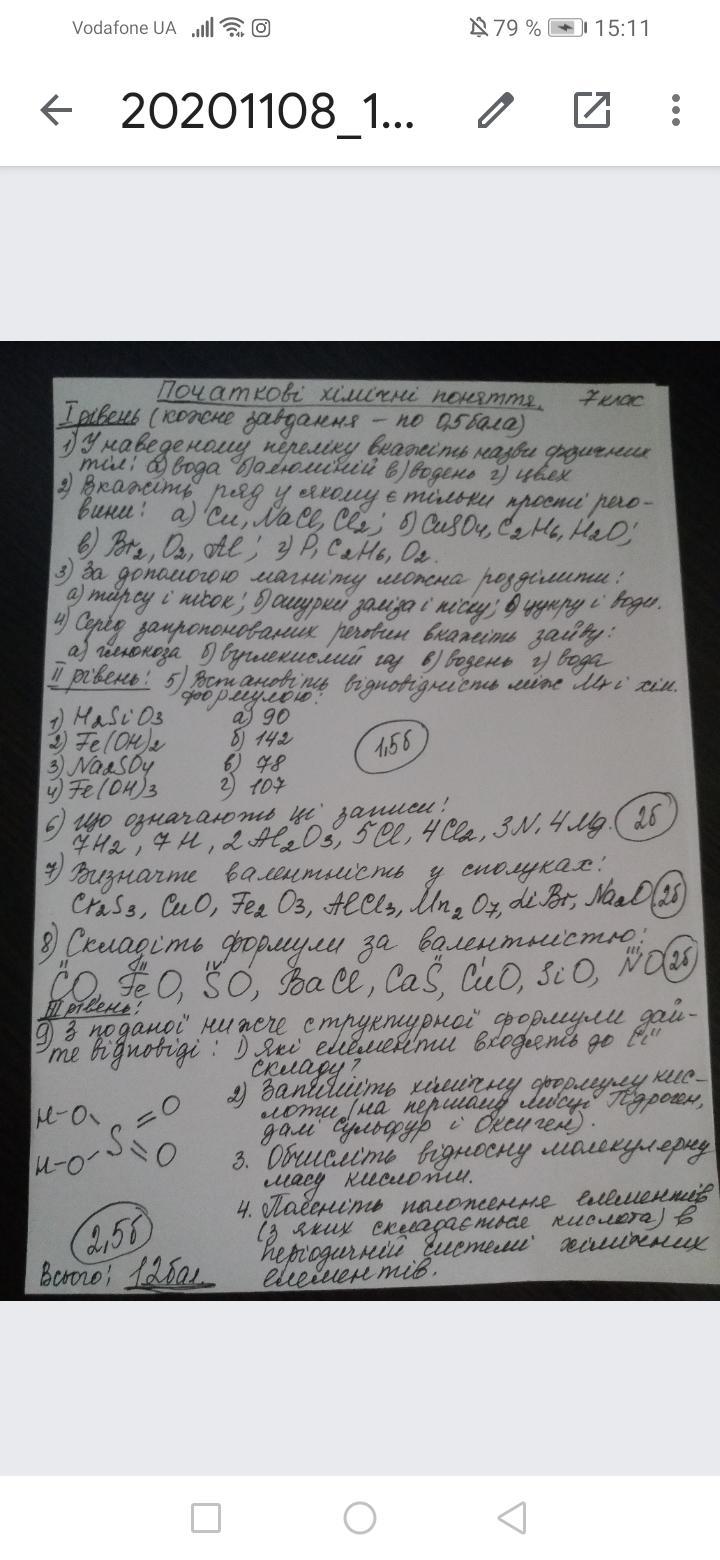 Vodafone UA
79 %
15:11
20201108_1...
Початкові хімічні поняття. 7 клас
І рівень (кожне завдання – по 0,5 бала)
1) У наведеному переліку вкажіть назви фізичних
тіл: а) вода б) алюміній в) водень г) цвях
2) Вкажіть ряд у якому є тільки прості речо-
вини: а) Cu, NaCl, Cl2; б) CuSO4, C2H6, H2O;
в) Br2, O2, Al; г) P, C2H6, O2.
3) За допомогою магніту можна розділити:
а) тирсу і пісок; б) ошурки заліза і піску; в) цукру і води.
4) Серед запропонованих речовин вкажіть зайву:
а) глюкоза б) вуглекислий газ в) водень г) вода
ІІ рівень: 5) Встановіть відповідність між Mr і хім.
формулою:
1) H2SiO3 а) 90
2) Fe(OH)2 б) 142
3) Na2SO4 в) 78
4) Fe(OH)3 г) 107
1,5б
6) Що означають ці записи:
7H2, 7H, 2Al2O3, 5Cl, 4Cl2, 3N, 4Mg. 2б
7) Визначте валентність у сполуках:
Cr2S3, CuO, Fe2O3, AlCl3, Mn2O7, LiBr, Na2O 2б
8) Складіть формули за валентністю:
II III IV II I III
CO, FeO, SO, BaCl, CaS, CuO, SiO, NO 2б
ІІІ рівень:
9) З поданої нижче структурної формули дай-
те відповіді: 1) Які елементи входять до її
складу?
2) Запишіть хімічну формулу кис-
лоти (на першому місці Гідроген,
далі Сульфур і Оксиген).
3. Обчисліть відносну молекулярну
масу кислоти.
4. Поясніть положення елементів
(з яких складається кислота) в
періодичній системі хімічних
елементів.
H–O O
S
H–O O
2,5б
Всього: 12бал.